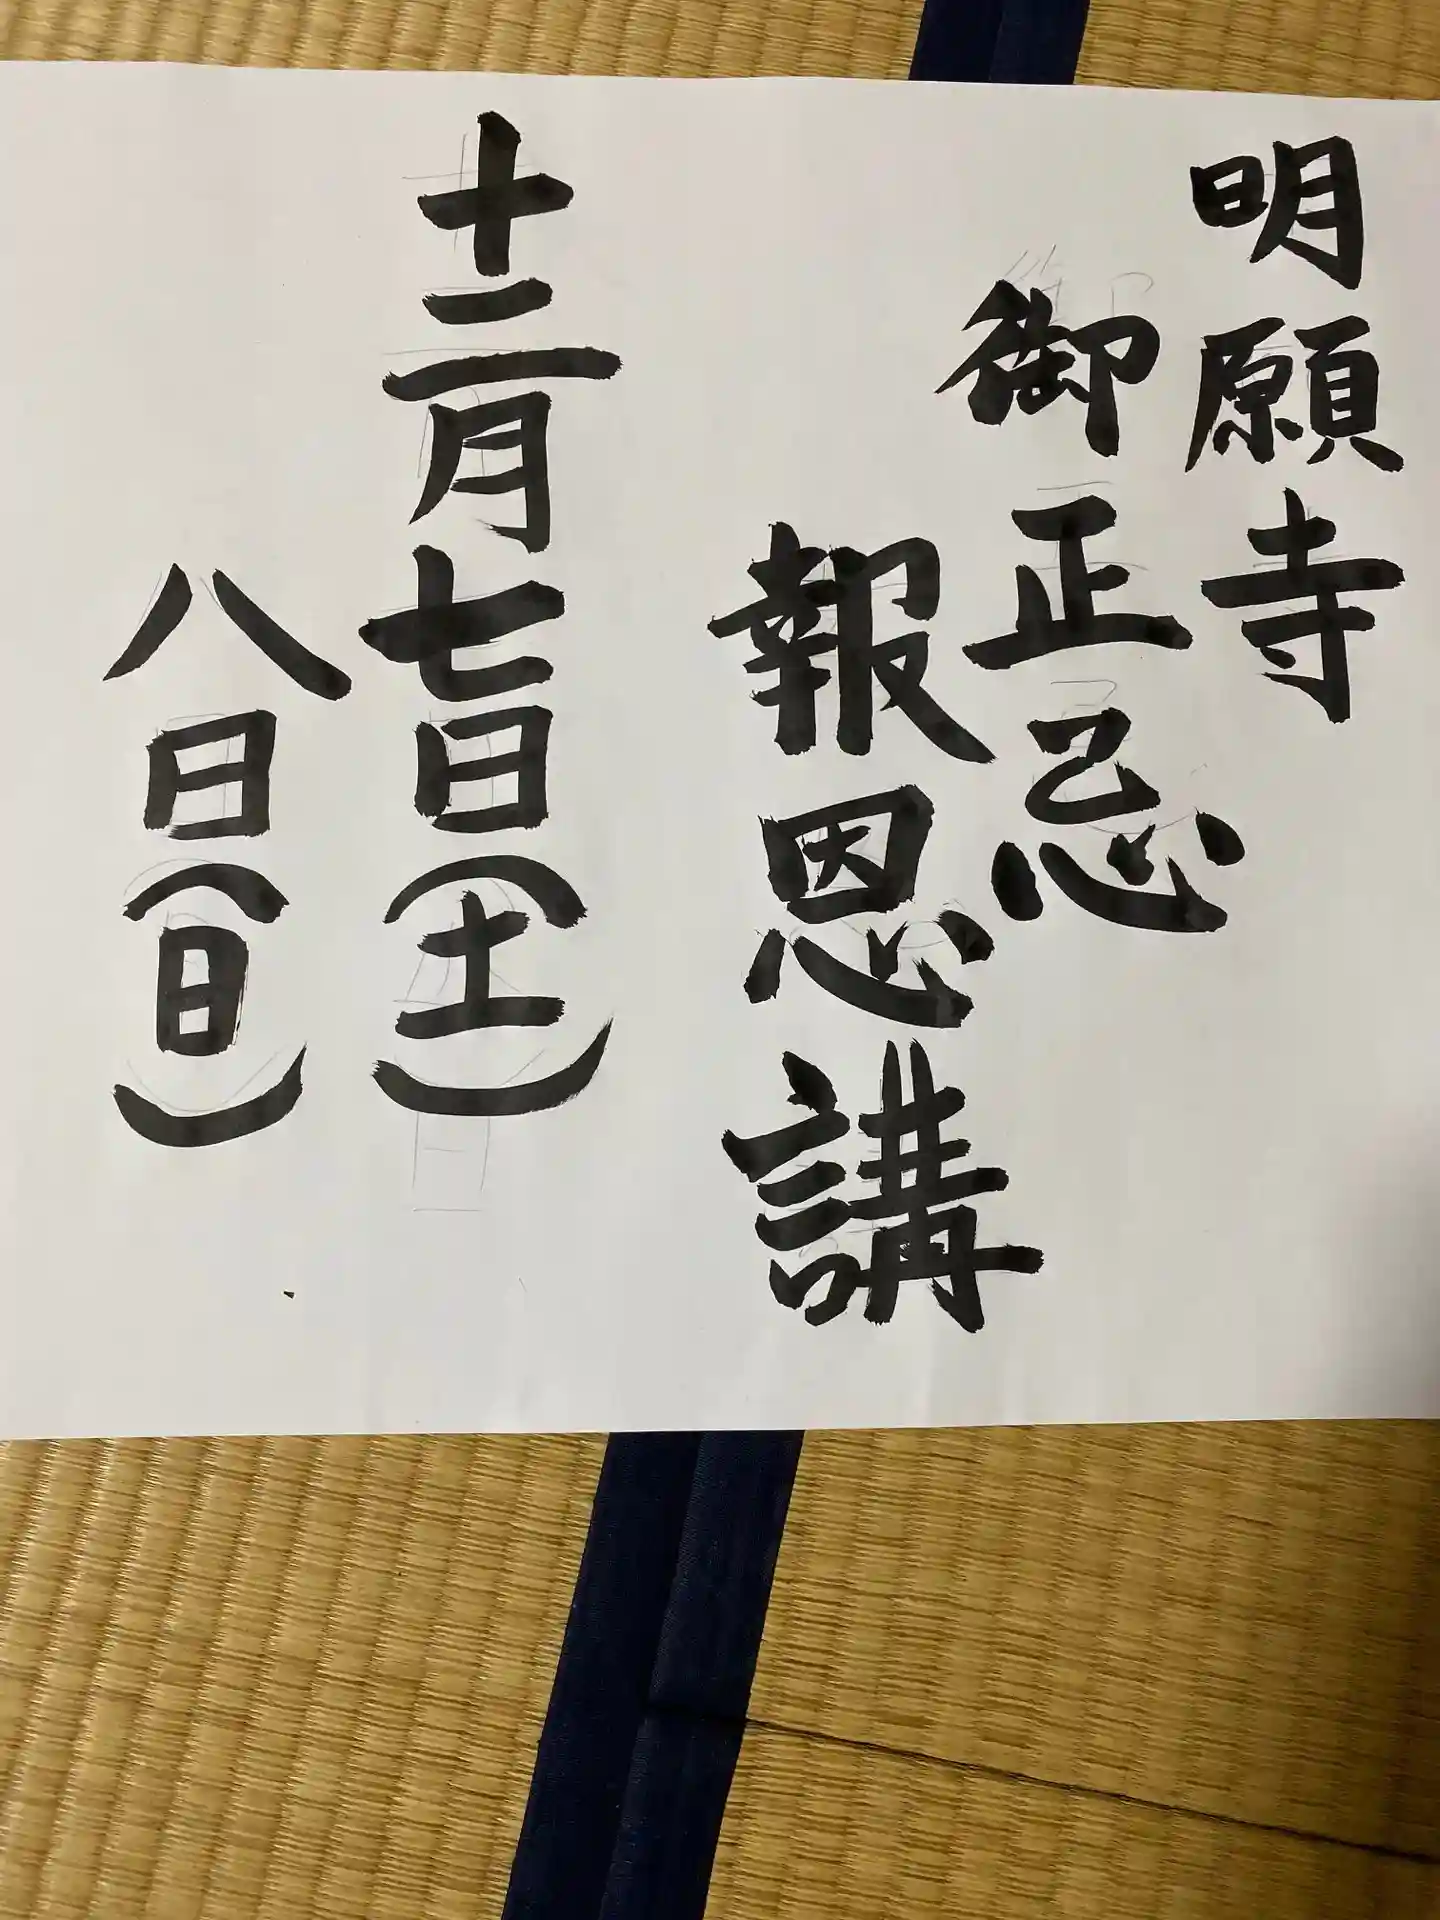 明願寺
御正忌
報恩講
十二月七日(土)
八日(日)